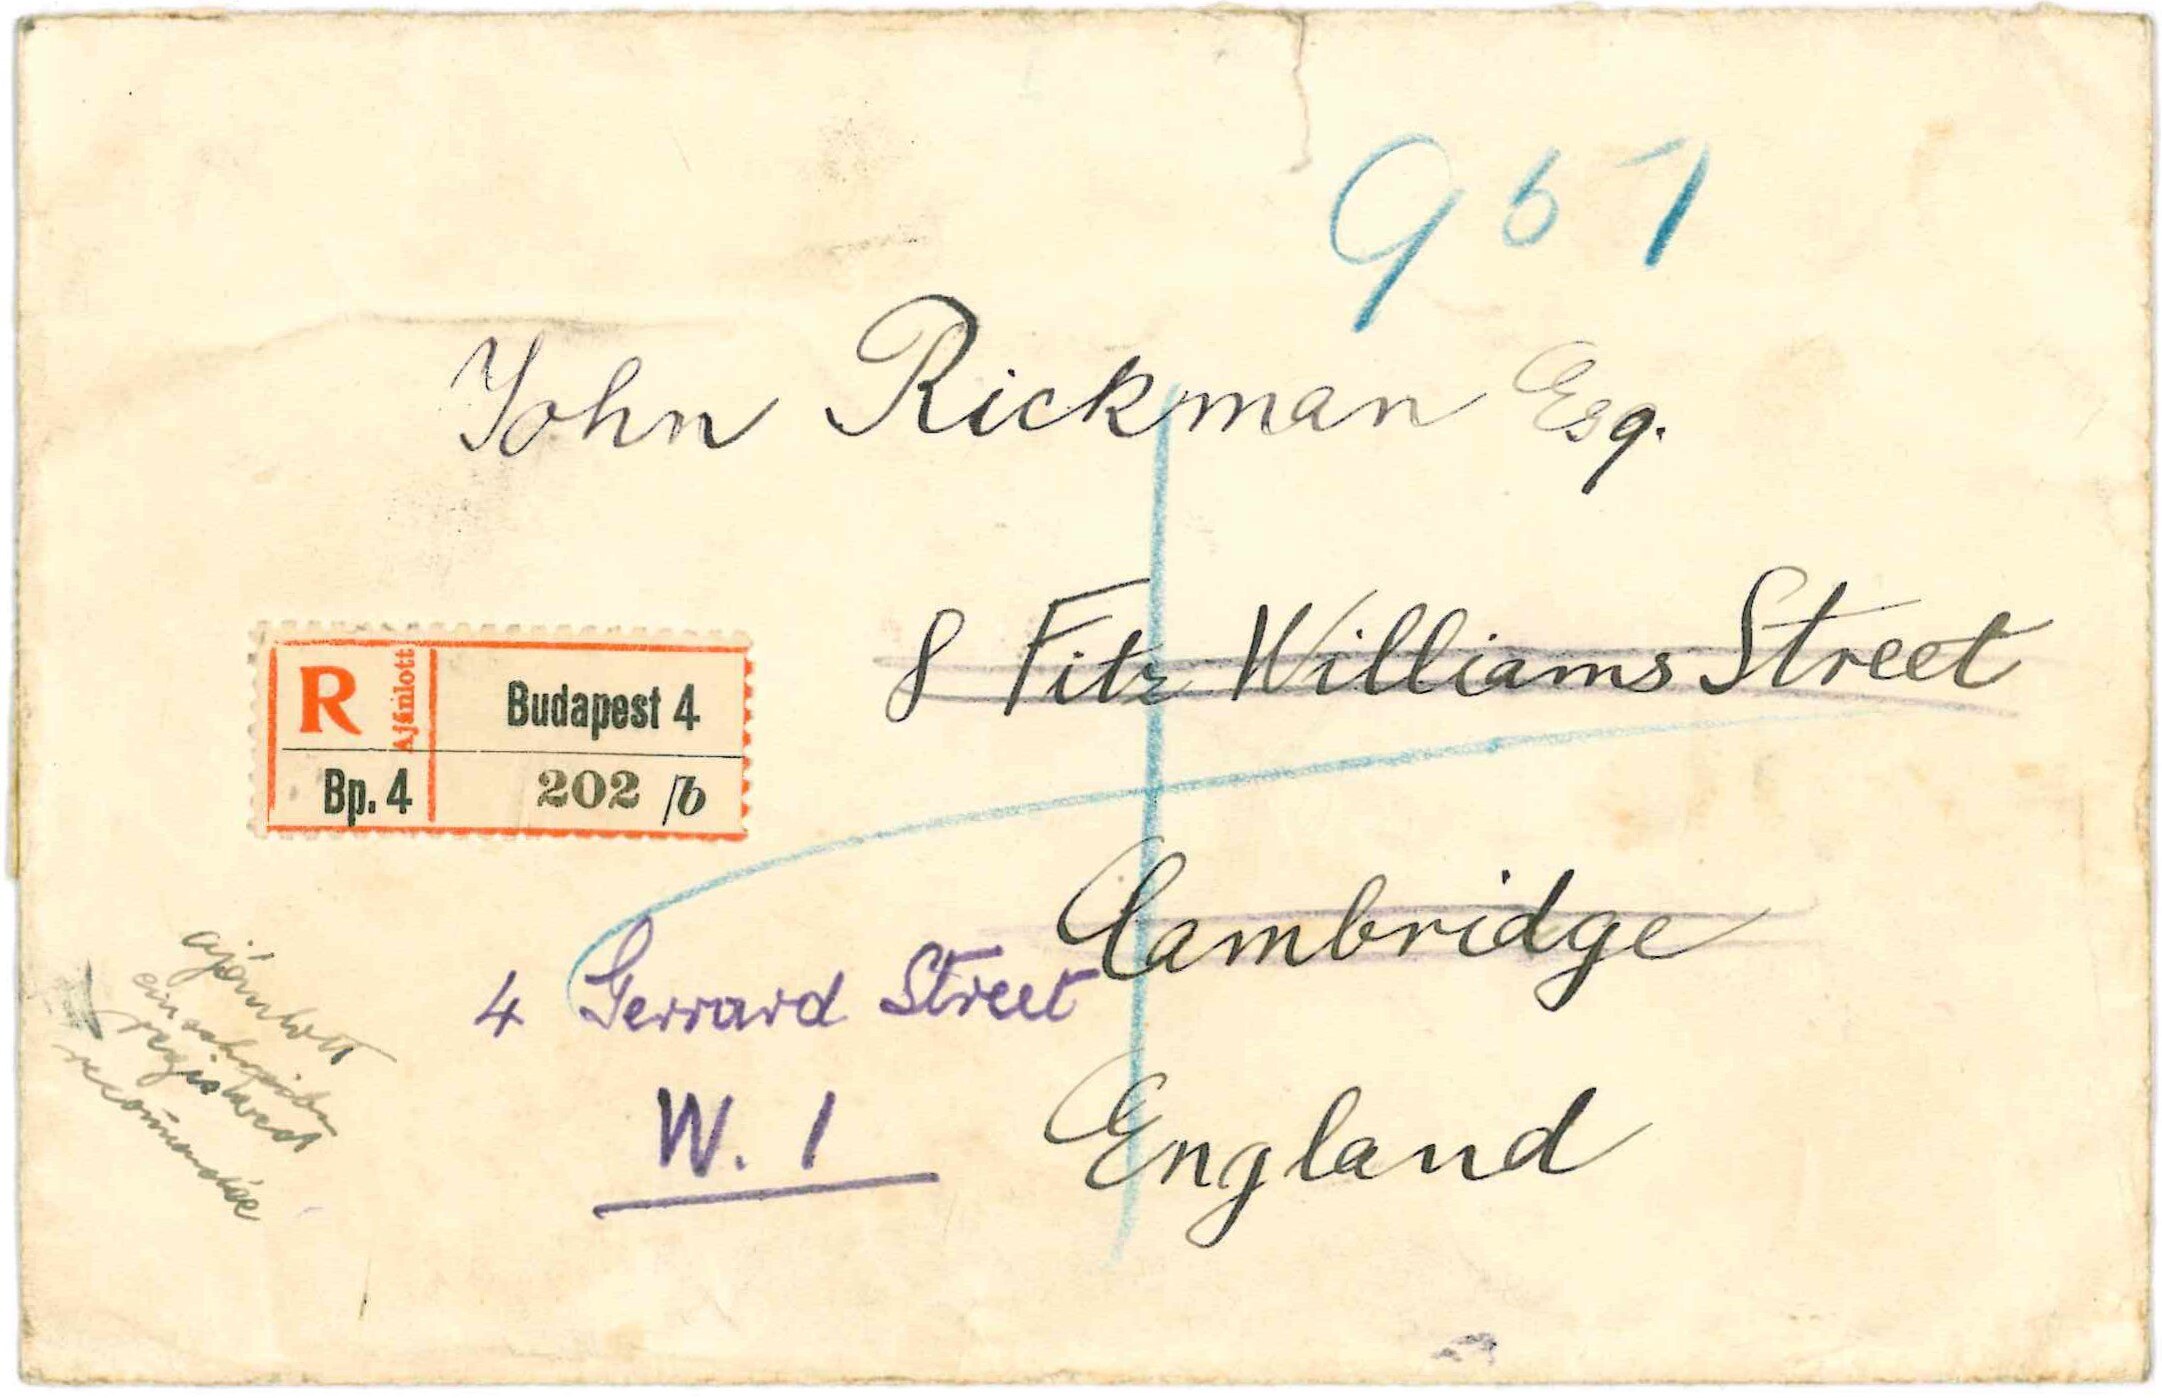 951
John Rickman Esq.
8 Fitz Williams Street
R Ajánlott Budapest 4
Bp. 4 202 /b
Cambridge
4 Gerrard Street
W. 1
England
ajánlott
einschreiben
registered
recom̄andée